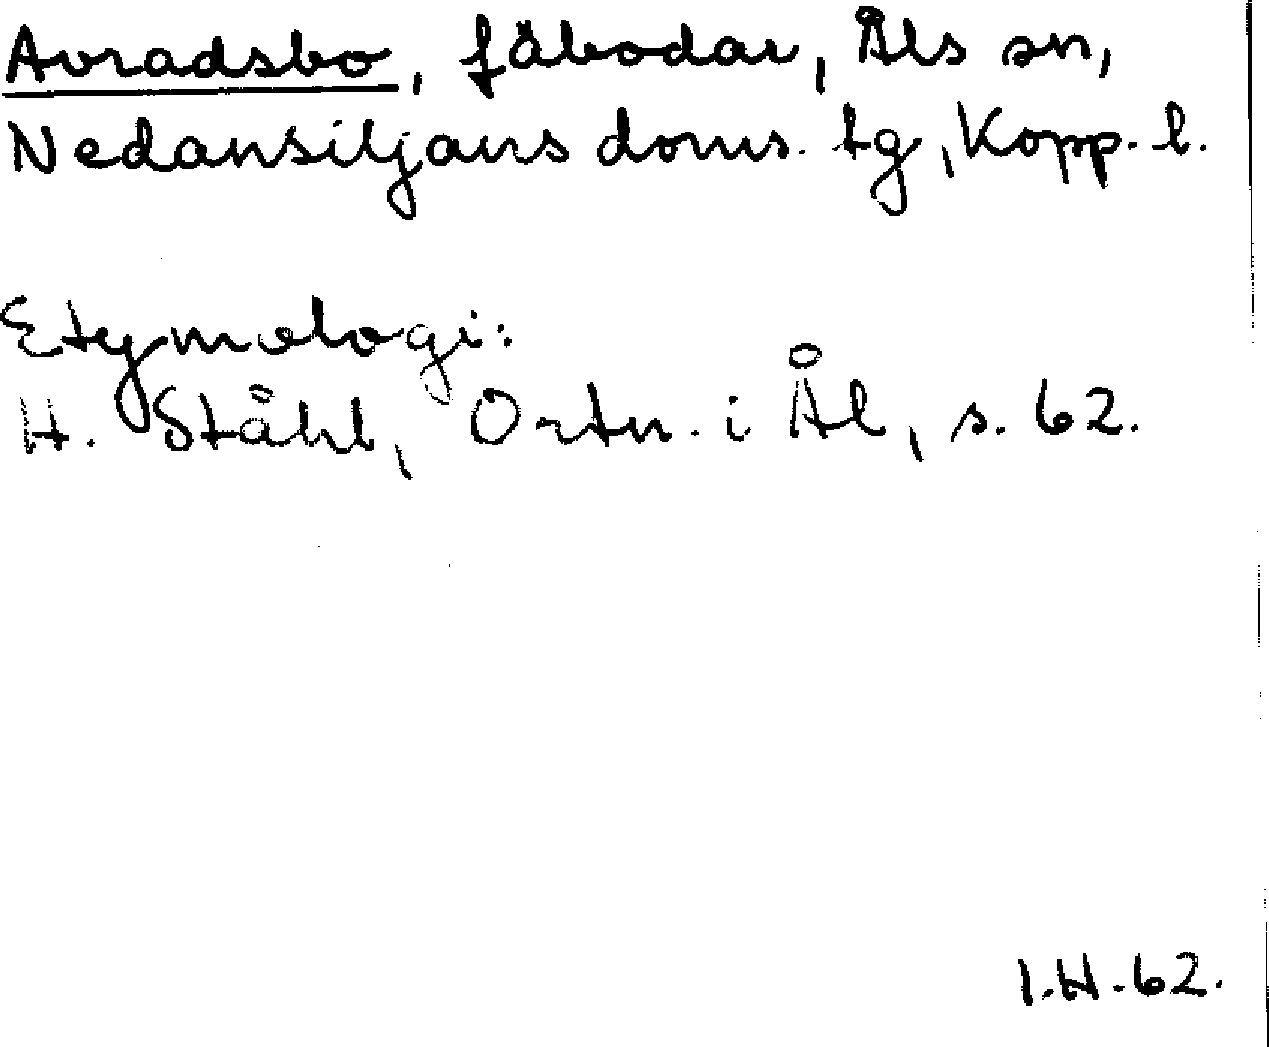 Avradsbo, fäbodar, Åls sn,
Nedansiljans doms. tg, Kopp. l.
Etymologi:
H. Ståhl, Ortn. i Ål, s. 62.
I.H.62.